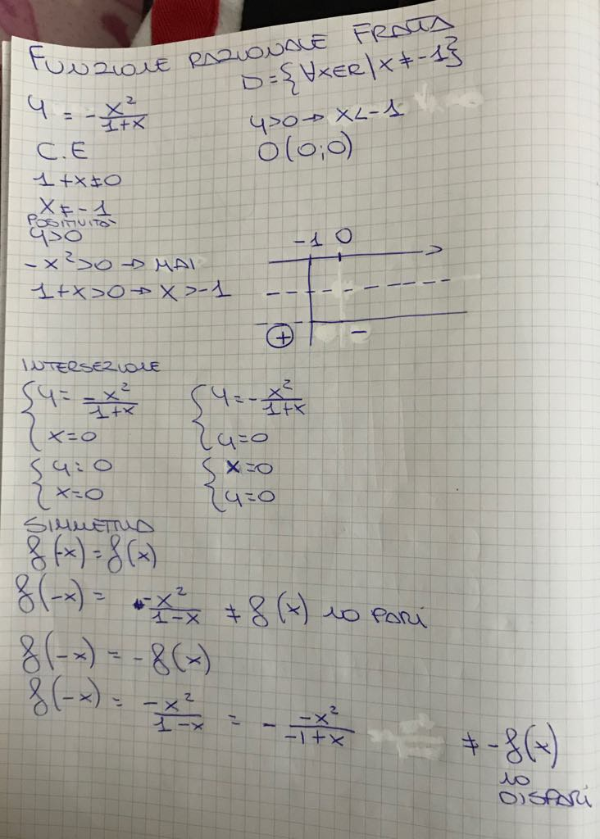 FUNZIONE RAZIONALE FRATTA
D={∀x∈R|x≠-1}
y = -x²/1+x
y>0→x<-1
C.E
O(0;0)
1+x≠0
x≠-1
POSITIVITÀ
y>0
-x²>0→MAI
1+x>0→x>-1
-1 0
+ -
INTERSEZIONE
{y=-x²/1+x
{x=0
{y=-x²/1+x
{y=0
{y=0
{x=0
{x=0
{y=0
SIMMETRIA
f(-x)=f(x)
f(-x)= -x²/1-x ≠f(x) no PARI
f(-x)=-f(x)
f(-x)= -x²/1-x = - -x²/-1+x ≠-f(x)
no
DISPARI